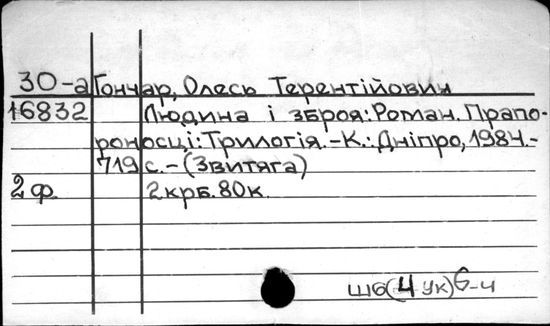 30-а Гончар, Олесь Терентійович
16832 Людина і зброя: Роман. Прапо-
роносці: Трилогія. -К.: Дніпро, 1984.-
719 с. - (Звитяга)
2 ф. 2 крб. 80 к.
Ш6(4 Ук) 6-4